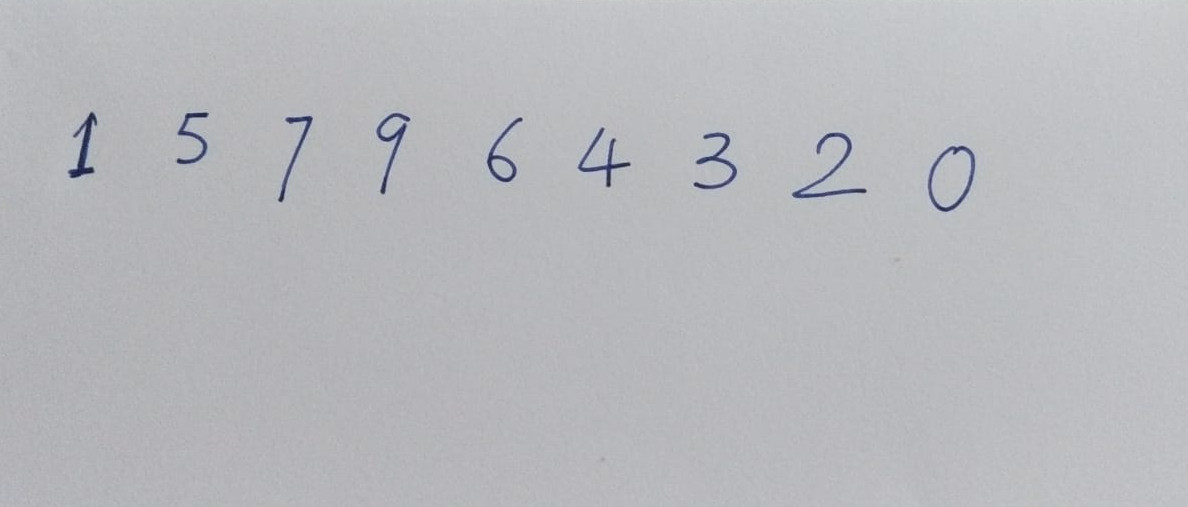 1 5 7 9 6 4 3 2 0